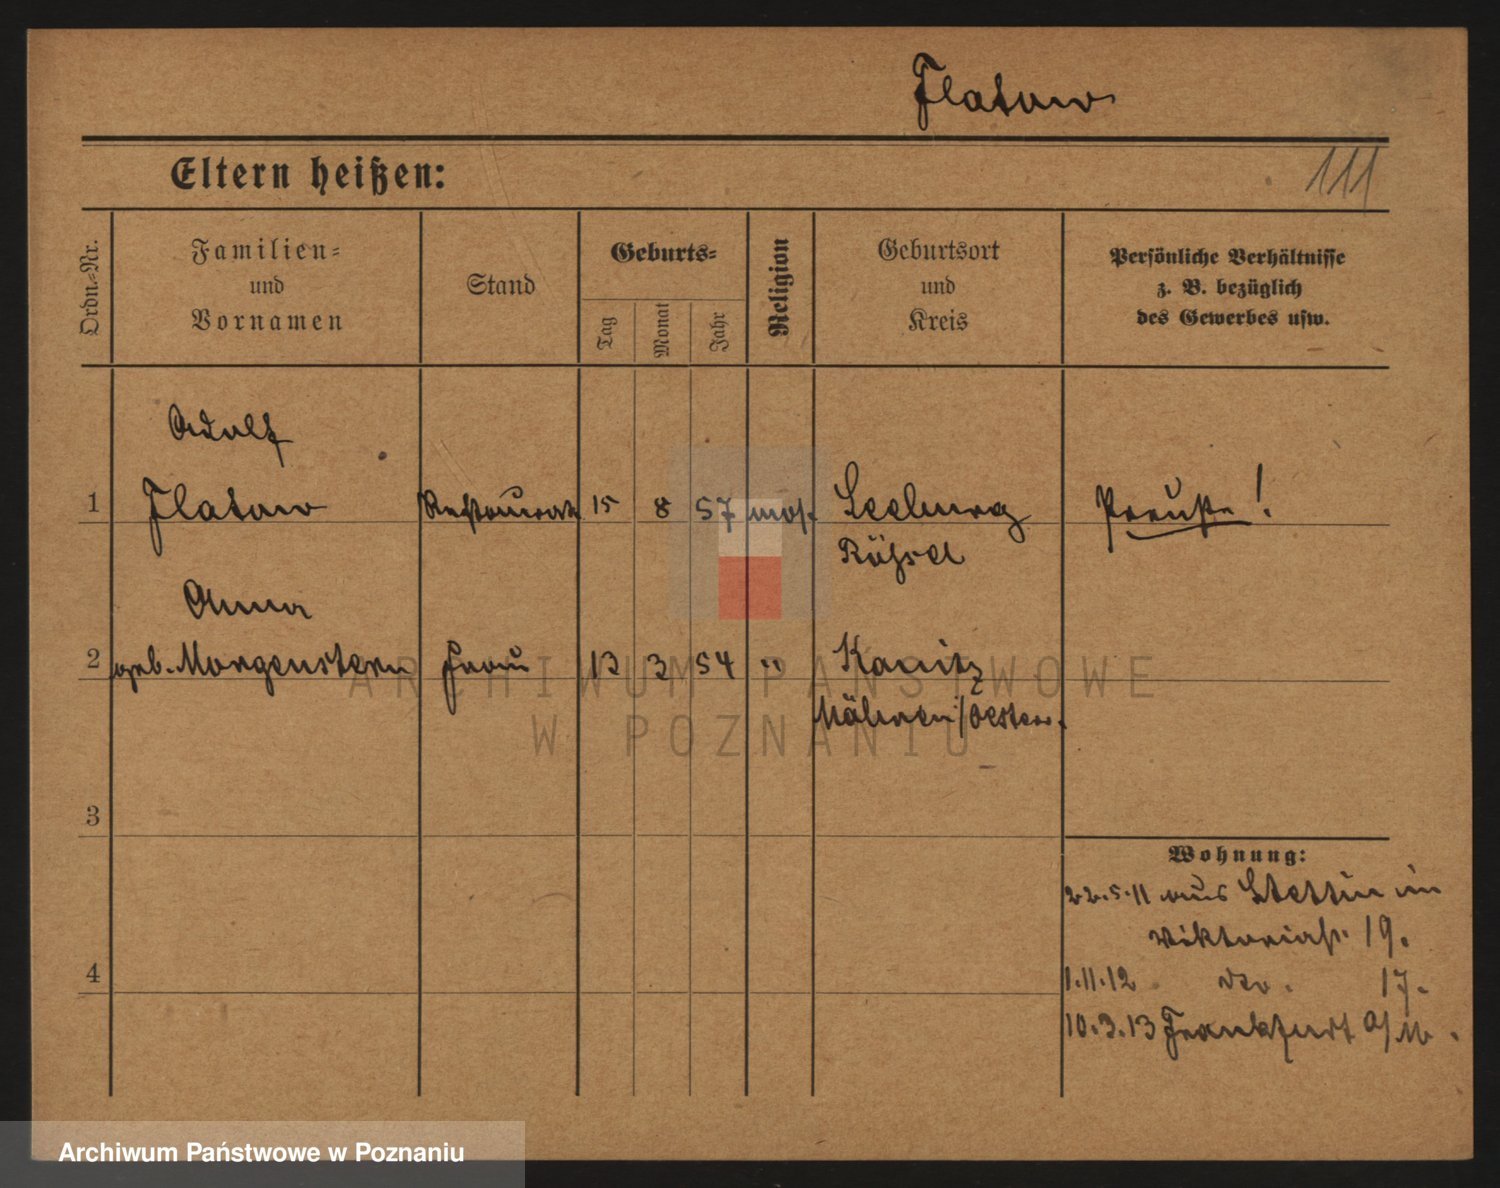 Flatow
Eltern heißen:
111
Ordn.-Nr.
Familien-
und
Vornamen
Stand
Geburts-
Tag
Monat
Jahr
Religion
Geburtsort
und
Kreis
Persönliche Verhältnisse
z. B. bezüglich
des Gewerbes usw.
Adolf
1 Flatow Restaurat 15 8 57 mos. Seeburg Preuße!
Rößel
Anna
2 geb. Morgenstern Frau 13 3 54 " Kanitz
Mähren/Oester.
3
4
Wohnung:
22.5.11 aus Stettin in
Viktoriastr. 19.
1.11.12 dto. 17.
10.3.13 Frankfurt a/M.
ARCHIWUM PAŃSTWOWE
W POZNANIU
Archiwum Państwowe w Poznaniu